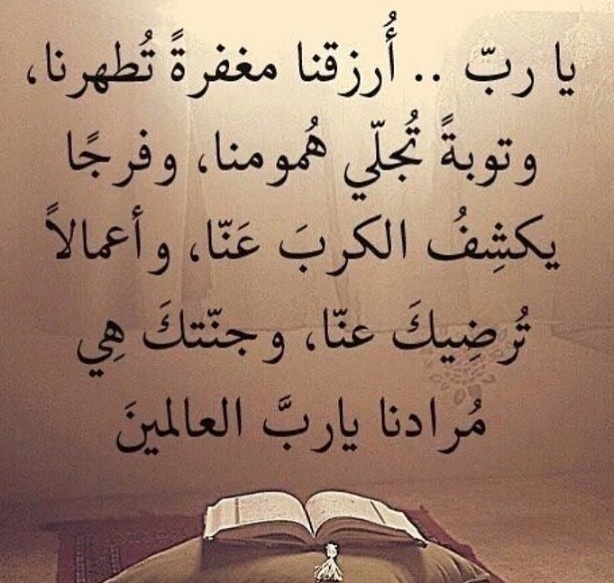 يا ربّ .. أُرزقنا مغفرةً تُطهرنا،
وتوبةً تُجلّي هُمومنا، وفرجًا
يكشِفُ الكربَ عَنّا، وأعمالاً
تُرضِيكَ عنّا، وجنّتكَ هِي
مُرادنا ياربَّ العالمينَ